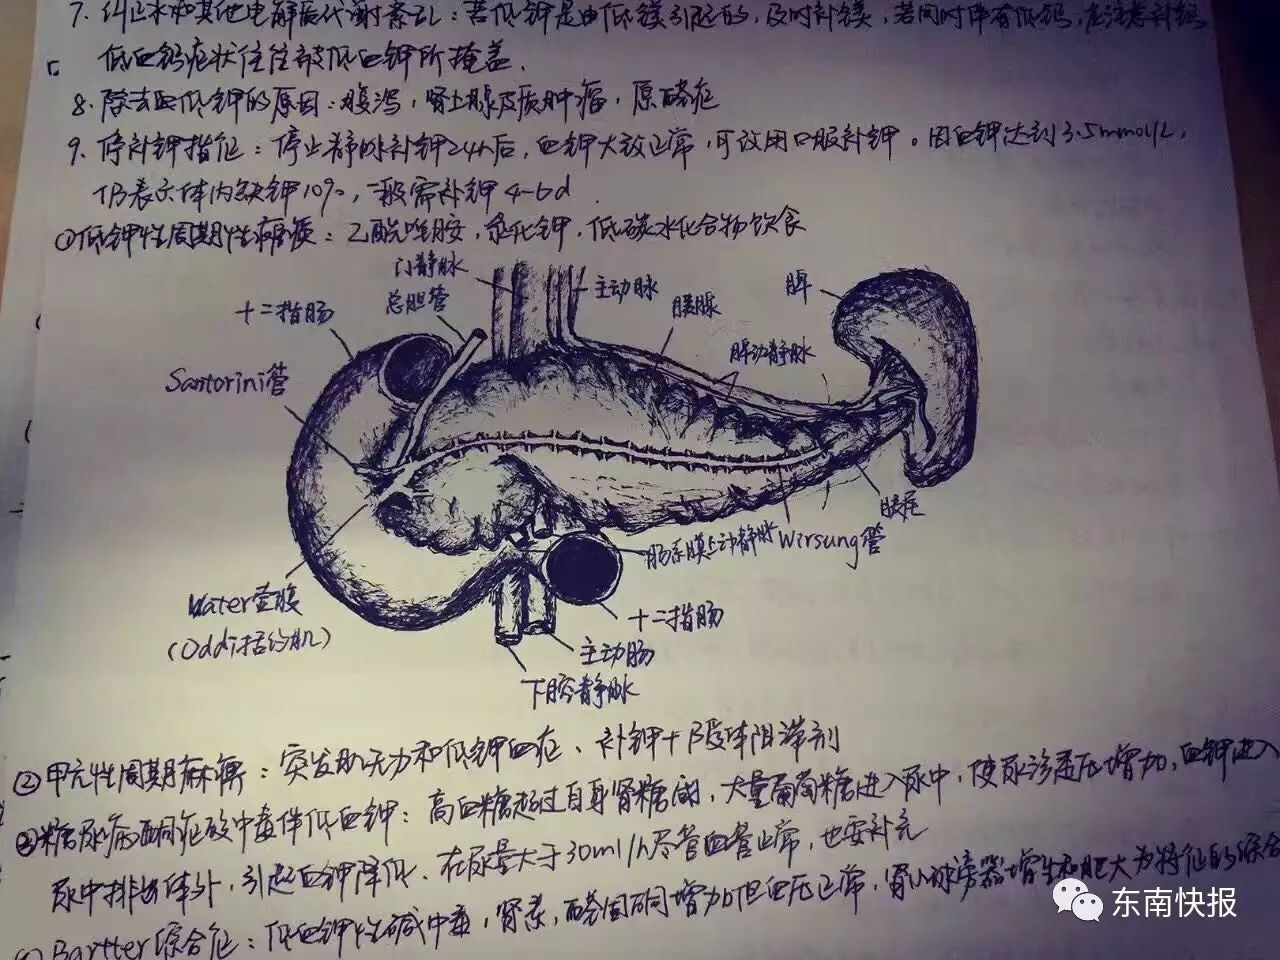 7. 纠正水和其他电解质代谢紊乱：若低钾是由低镁引起的，及时补镁，若同时伴有低钙，应注意补钙
低血钙症状往往被低血钾所掩盖.
8. 除去血低钾的原因：腹泻，肾上腺皮质肿瘤，原醛症
9. 停补钾指征：停止静脉补钾24h后，血钾大致正常，可改用口服补钾。因血钾达到3.5mmol/L，
仍表示体内缺钾10%，一般需补钾4-6d
①低钾性周期性瘫痪：乙酰唑胺，氯化钾，低碳水化合物饮食
门静脉
主动脉
脾
十二指肠
总胆管
胰腺
脾动静脉
Santorini管
胰尾
肠系膜上动静脉
Wirsung管
Water壶腹
(Oddi括约肌)
十二指肠
主动肠
下腔静脉
②甲亢性周期麻痹：突发肌无力和低钾血症、补钾+β受体阻滞剂
③糖尿病酮症酸中毒伴低血钾：高血糖超过自身肾糖阈，大量葡萄糖进入尿中，使尿渗透压增加，血钾进入
尿中排出体外，引起血钾降低. 在尿量大于30ml/h尽管血管正常，也要补充
Bartter综合征：低血钾性碱中毒，肾素，醛固酮增加但血压正常，肾小球旁器增生和肥大为特征的综合
东南快报